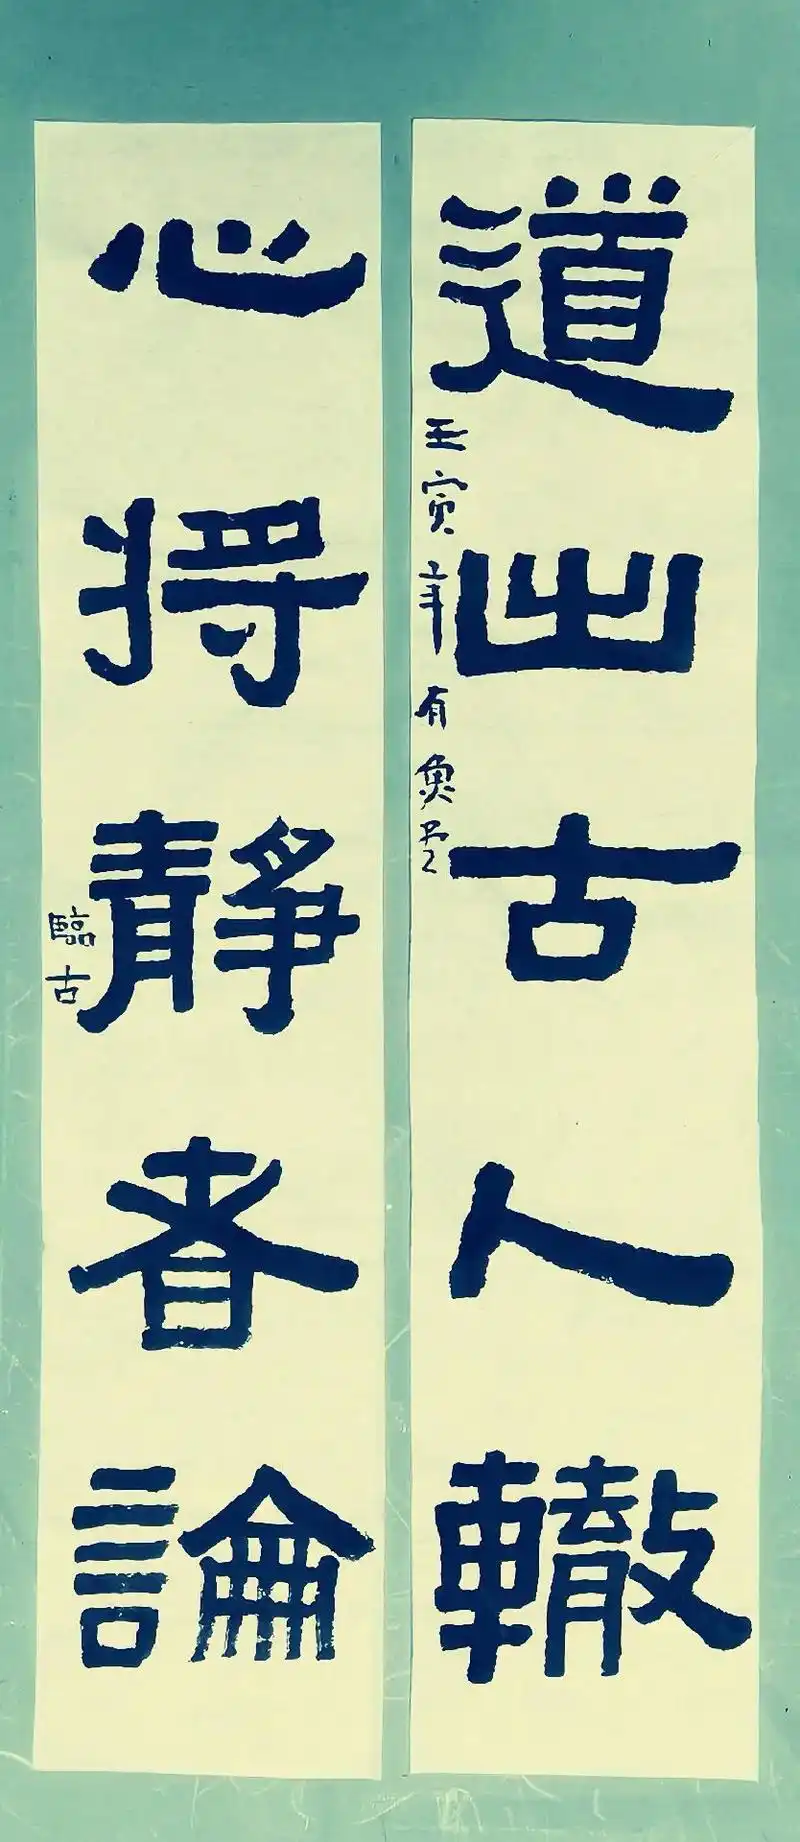 道出古人轍
壬寅年有魚
心將靜者論
臨古